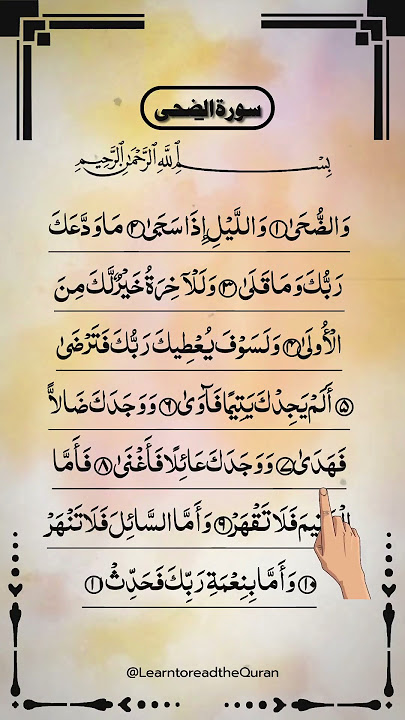 سورة الضحى
بِسْمِ ٱللَّهِ ٱلرَّحْمَٰنِ ٱلرَّحِيمِ
وَالضُّحَىٰ ١ وَاللَّيْلِ إِذَا سَجَىٰ ٢ مَا وَدَّعَكَ
رَبُّكَ وَمَا قَلَىٰ ٣ وَلَلْآخِرَةُ خَيْرٌ لَّكَ مِنَ
الْأُولَىٰ ٤ وَلَسَوْفَ يُعْطِيكَ رَبُّكَ فَتَرْضَىٰ
٥ أَلَمْ يَجِدْكَ يَتِيمًا فَآوَىٰ ٦ وَوَجَدَكَ ضَالًّا
فَهَدَىٰ ٧ وَوَجَدَكَ عَائِلًا فَأَغْنَىٰ ٨ فَأَمَّا
فَلَا تَقْهَرْ ٩ وَأَمَّا السَّائِلَ فَلَا تَنْهَرْ
١٠ وَأَمَّا بِنِعْمَةِ رَبِّكَ فَحَدِّثْ ١
@LearntoreadtheQuran